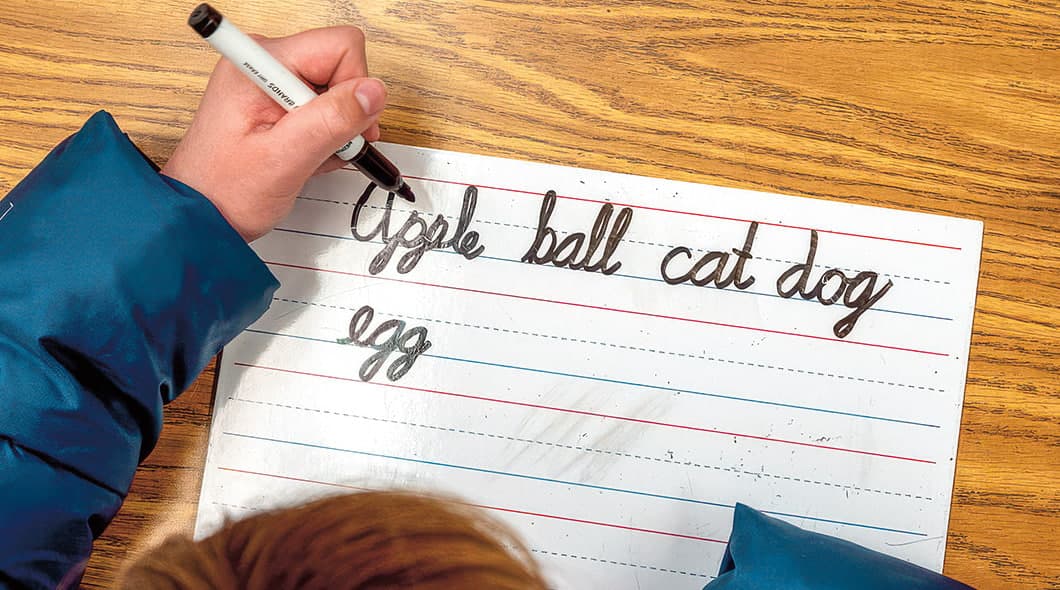 BRANDS DRY ERASE
apple ball cat dog
egg